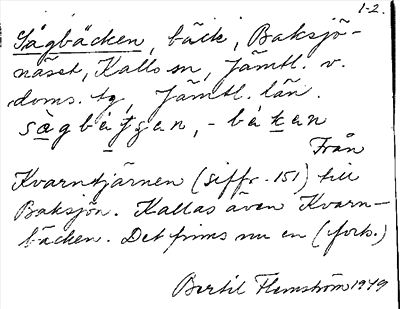 1-2.
Sågbäcken, bäck, Baksjö-
näset, Kalls sn, Jämtl. v.
doms. tg, Jämtl. län.
sågbätj̣en, - bäken
Från
Kvarntjärnen (siffr. 151) till
Baksjön. Kallas även Kvarn-
bäcken. Det finns nu en (fork.)
Bertil Flemström 1949